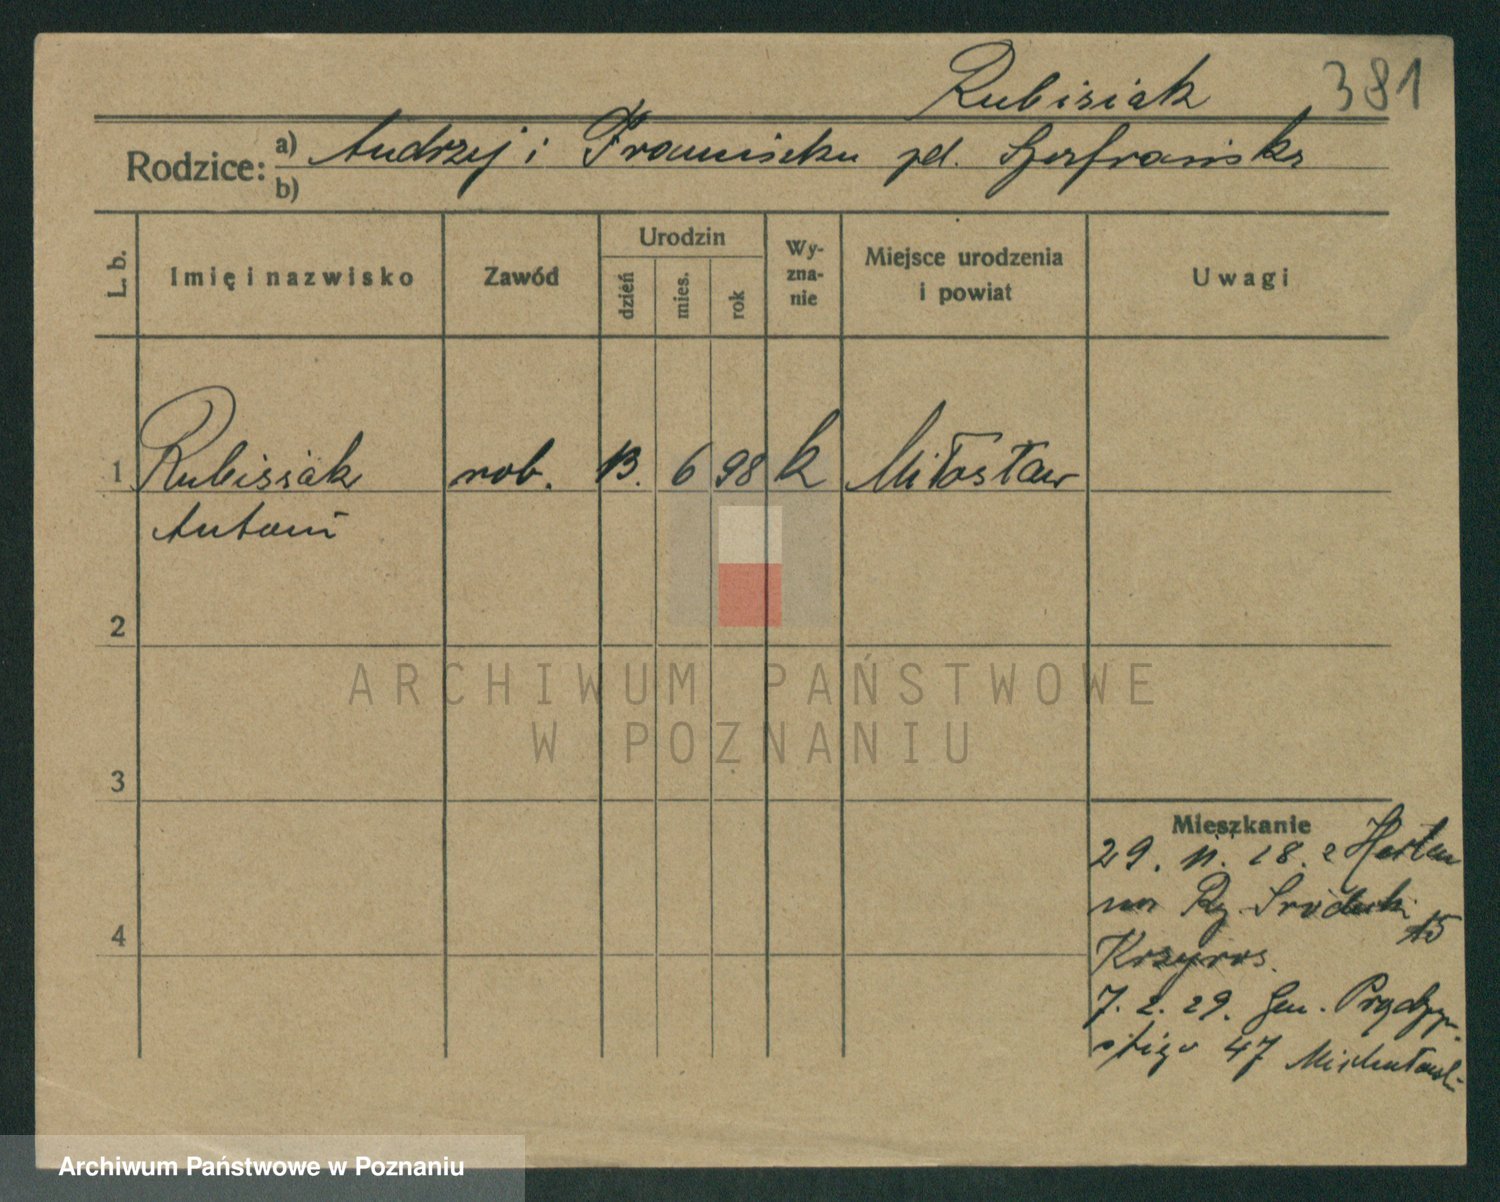 Rubisiak 381
Rodzice: a) Andrzej i Franciszka zd. Szafrańska
b)
L. b. Imię i nazwisko Zawód Urodzin dzień mies. rok Wyznanie Miejsce urodzenia i powiat Uwagi
1 Rubisiak rob. 13. 6 98 k Miłosław
Antoni
2
ARCHIWUM PAŃSTWOWE
W POZNANIU
3
Mieszkanie
29. 11. 28. z
na Ry. Śródecki 15
4
7. 2. 29. Gen. Prądzyń-
skiego 47
Archiwum Państwowe w Poznaniu